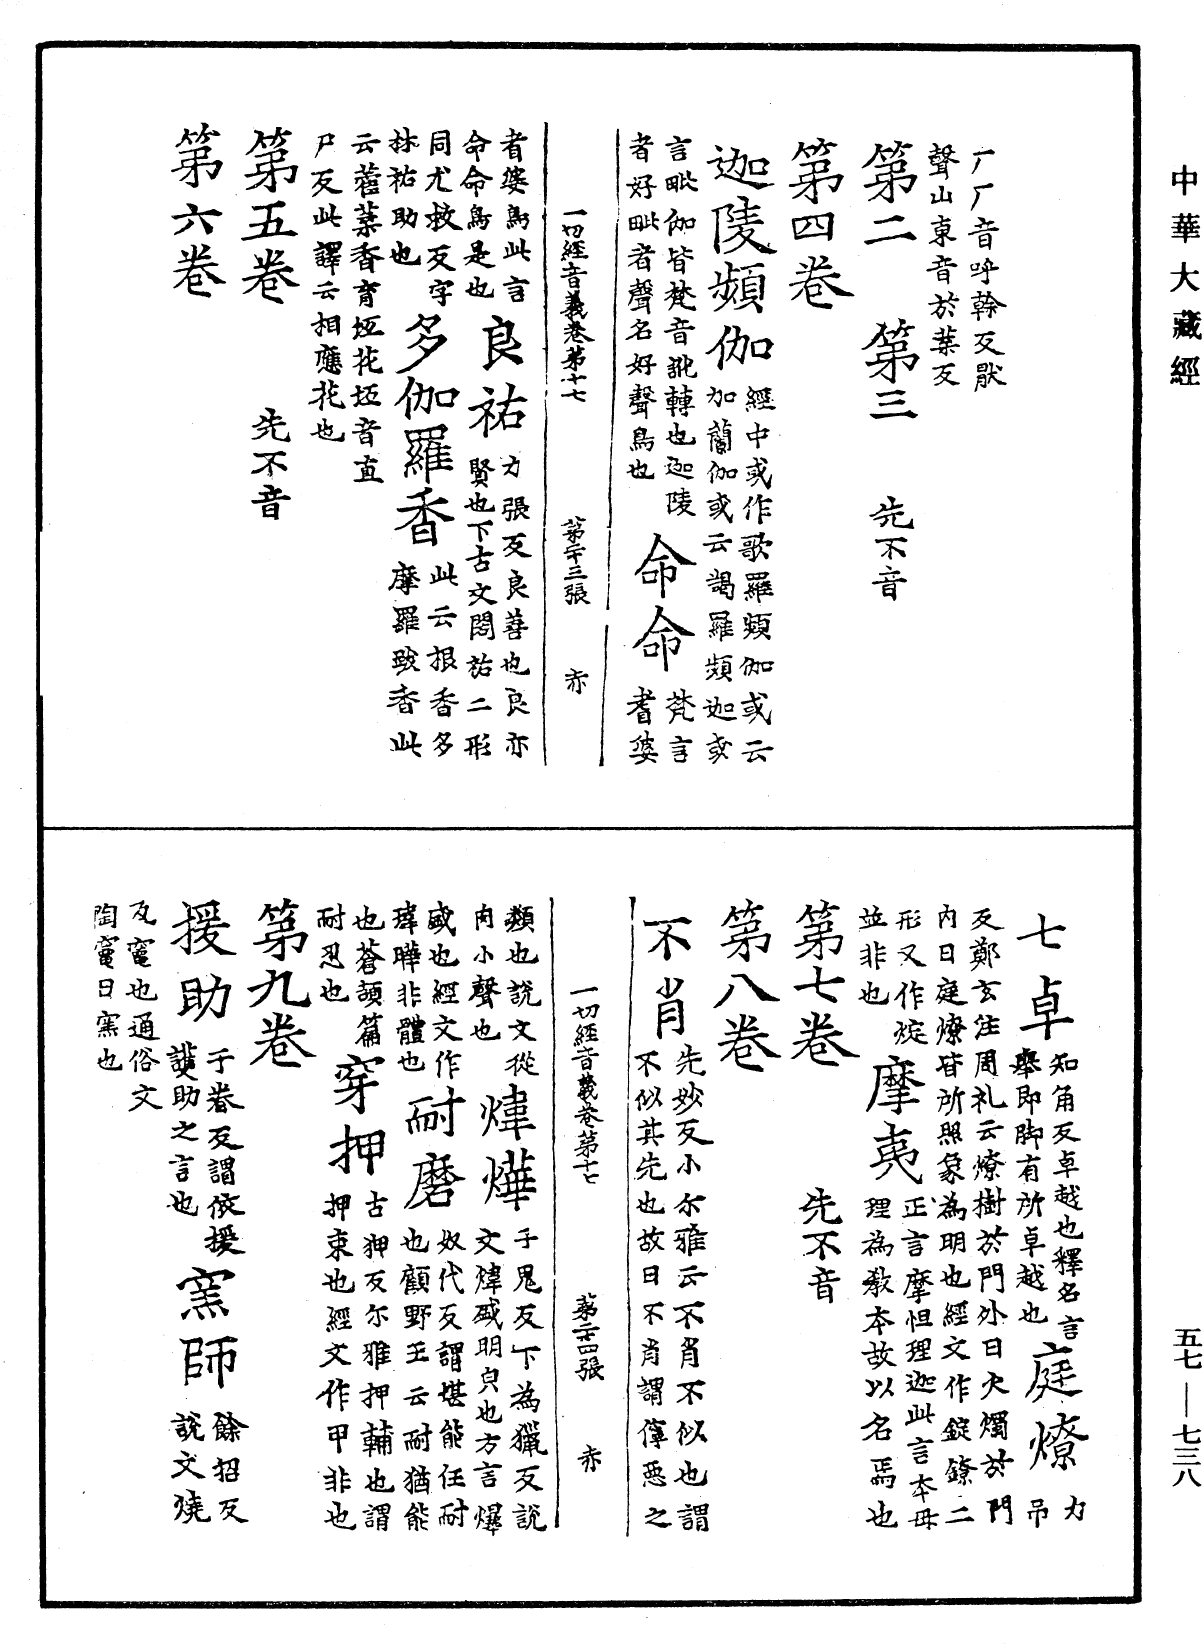 中華大藏經
厂厂音呼幹反厭
聲山東音於葉反
第二　第三　先不音
第四卷
迦陵頻伽　經中或作歌羅頻伽或云
加蘭伽或云謁羅頻迦或
言毗伽皆梵音訛轉也迦陵
者好毗者聲名好聲鳥也
命命　梵言
耆婆
一切經音義卷第十七　第二十三張　亦
者婆鳥此言
命命鳥是也
良祐　力張反良善也良亦
賢也下古文閎祐二形
同尤救反字
林祐助也
多伽羅香　此云根香多
摩羅跋香此
云藿葉香育坻花坻音直
尸反此譯云相應花也
第五卷　先不音
第六卷
七卓　知角反卓越也釋名言
舉即脚有所卓越也
庭燎　力
吊
反鄭玄注周礼云燎樹於門外曰大燭於門
内曰庭燎皆所照象為明也經文作錠鐐二
形又作㷫
並非也
摩夷　正言摩怛理迦此言本母
理為教本故以名焉也
第七卷　先不音
第八卷
不肖　先妙反小尔雅云不肖不似也謂
不似其先也故曰不肖謂儜惡之
一切經音義卷第十七　第二十四張　亦
類也說文從
肉小聲也
煒爗　于鬼反下為獵反說
文煒盛明皃也方言爗
盛也經文作
瑋曄非體也
耐磨　奴代反謂堪能任耐
也顧野王云耐猶能
也蒼頡篇
耐忍也
穿押　古狎反尔雅押輔也謂
押束也經文作甲非也
第九卷
援助　于眷反謂依援
護助之言也
窯師　餘招反
說文燒
瓦竈也通俗文
陶竈曰窯也
五七—七三八